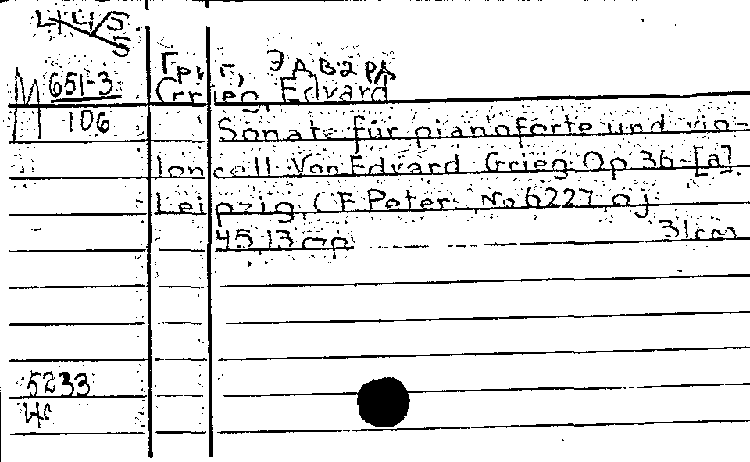 М 651-3
106
Григ, Эдвард
Grieg, Edvard
Sonate für pianoforte und vio-
loncell. Von Edvard Grieg. Op. 36 [a].
Leipzig, C F Peter No 6227 oj
45, 13 c.
31 cm
5233